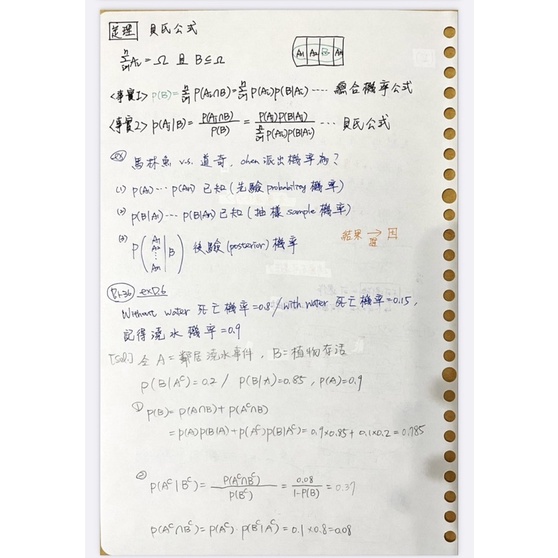 定理 貝氏公式
A₁ A₂ Aₙ
Σᵢ₌₁ⁿ Aᵢ = Ω 且 B⊆Ω
<事實1> P(B)=Σᵢ₌₁ⁿ P(Aᵢ∩B)=Σᵢ₌₁ⁿ P(Aᵢ)P(B|Aᵢ) ---- 總合機率公式
<事實2> P(Aⱼ|B)= P(Aⱼ∩B)/P(B) = P(Aⱼ)P(B|Aⱼ)/Σᵢ₌₁ⁿ P(Aᵢ)P(B|Aᵢ) --- 貝氏公式
ex 馬林魚 v.s. 道奇, chen 派出機率為?
(1) P(A₁) --- P(Aₙ) 已知 (先驗 probability 機率)
(2) P(B|A₁) --- P(B|Aₙ) 已知 (抽樣 sample 機率)
(3) P(A₁ A₂ ⋮ Aₙ | B) 後驗 (posterior) 機率
結果 → 因
P1-36 ex26
Without water 死亡機率=0.8 / with water 死亡機率=0.15,
記得澆水機率=0.9
[Sol:] 令 A=鄰居澆水事件, B=植物存活
P(B|Aᶜ)=0.2 / P(B|A)=0.85, P(A)=0.9
① P(B)=P(A∩B)+P(Aᶜ∩B)
=P(A)P(B|A)+P(Aᶜ)P(B|Aᶜ)=0.9×0.85+0.1×0.2=0.785
② P(Aᶜ|Bᶜ)= P(Aᶜ∩Bᶜ)/P(Bᶜ) = 0.08/1-P(B) = 0.37
P(Aᶜ∩Bᶜ)=P(Aᶜ)·P(Bᶜ|Aᶜ)=0.1×0.8=0.08